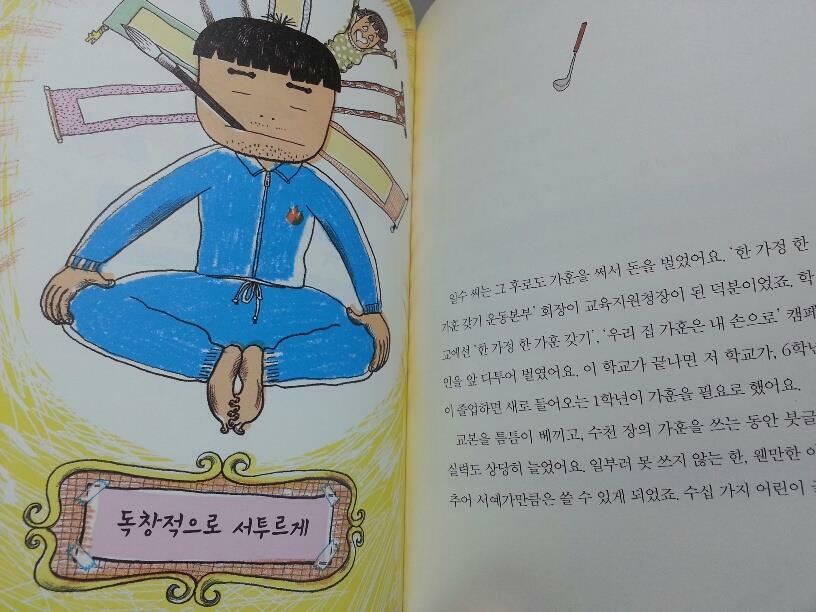 독창적으로 서투르게
일수 씨는 그 후로도 가훈을 써서 돈을 벌었어요. '한 가정 한
가훈 갖기 운동본부' 회장이 교육지원청장이 된 덕분이었죠. 학
교에선 '한 가정 한 가훈 갖기', '우리 집 가훈은 내 손으로' 캠페
인을 앞 다투어 벌였어요. 이 학교가 끝나면 저 학교가, 6학년
이 졸업하면 새로 들어오는 1학년이 가훈을 필요로 했어요.
교본을 틈틈이 베끼고, 수천 장의 가훈을 쓰는 동안 붓글
실력도 상당히 늘었어요. 일부러 못 쓰지 않는 한, 웬만한 아
추어 서예가만큼은 쓸 수 있게 되었죠. 수십 가지 어린이